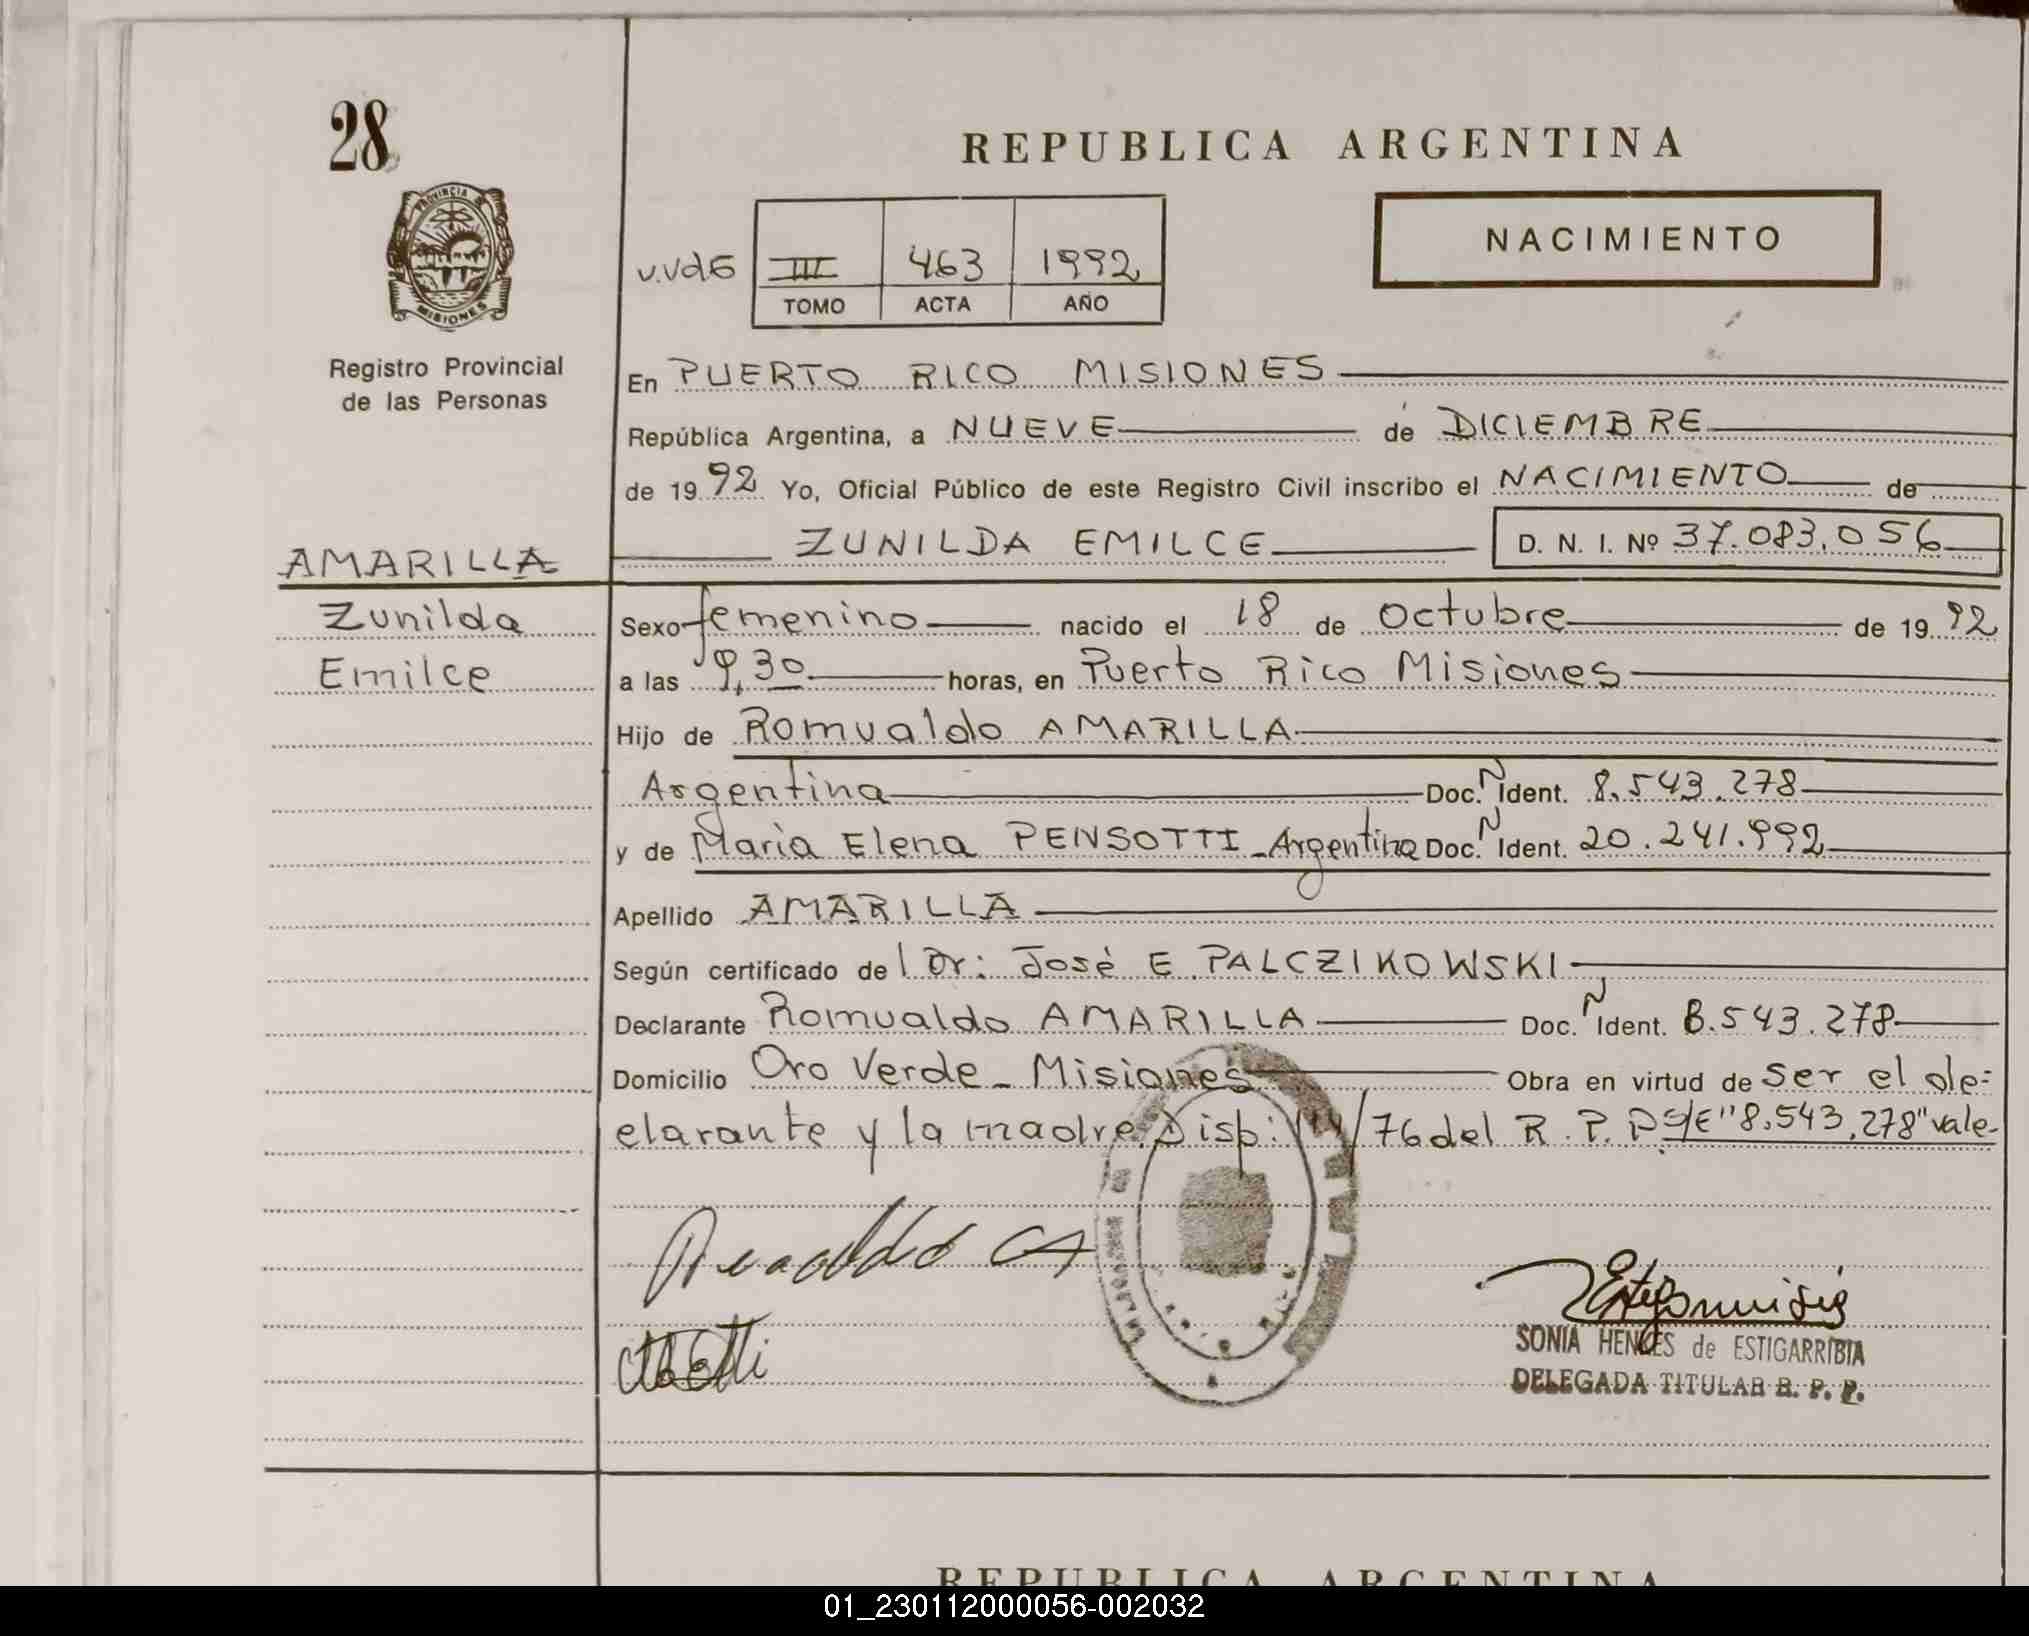 28
REPUBLICA ARGENTINA
PROVINCIA DE
MISIONES
Registro Provincial
de las Personas
NACIMIENTO
III 463 1992
TOMO ACTA AÑO
En PUERTO RICO MISIONES
República Argentina, a NUEVE de DICIEMBRE
de 1992 Yo, Oficial Público de este Registro Civil inscribo el NACIMIENTO de
ZUNILDA EMILCE D. N. I. Nº 37.083.056
AMARILLA
Zunilda
Emilce
Sexo femenino nacido el 18 de Octubre de 1992
a las 9,30 horas, en Puerto Rico Misiones
Hijo de Romualdo AMARILLA
Argentina Doc. N Ident. 8.543.278
y de Maria Elena PENSOTTI - Argentina Doc. N Ident. 20.241.992
Apellido AMARILLA
Según certificado del Dr: José E. PALCZIKOWSKI
Declarante Romualdo AMARILLA Doc. N Ident. 8.543.278
Domicilio Oro Verde - Misiones Obra en virtud de ser el de=
clarante y la madre. Disp: /76 del R. P. P S/E "8.543.278" vale-
SONIA HENCES de ESTIGARRIBIA
DELEGADA TITULAR R. P. P.
REPUBLICA ARGENTINA
01_230112000056-002032